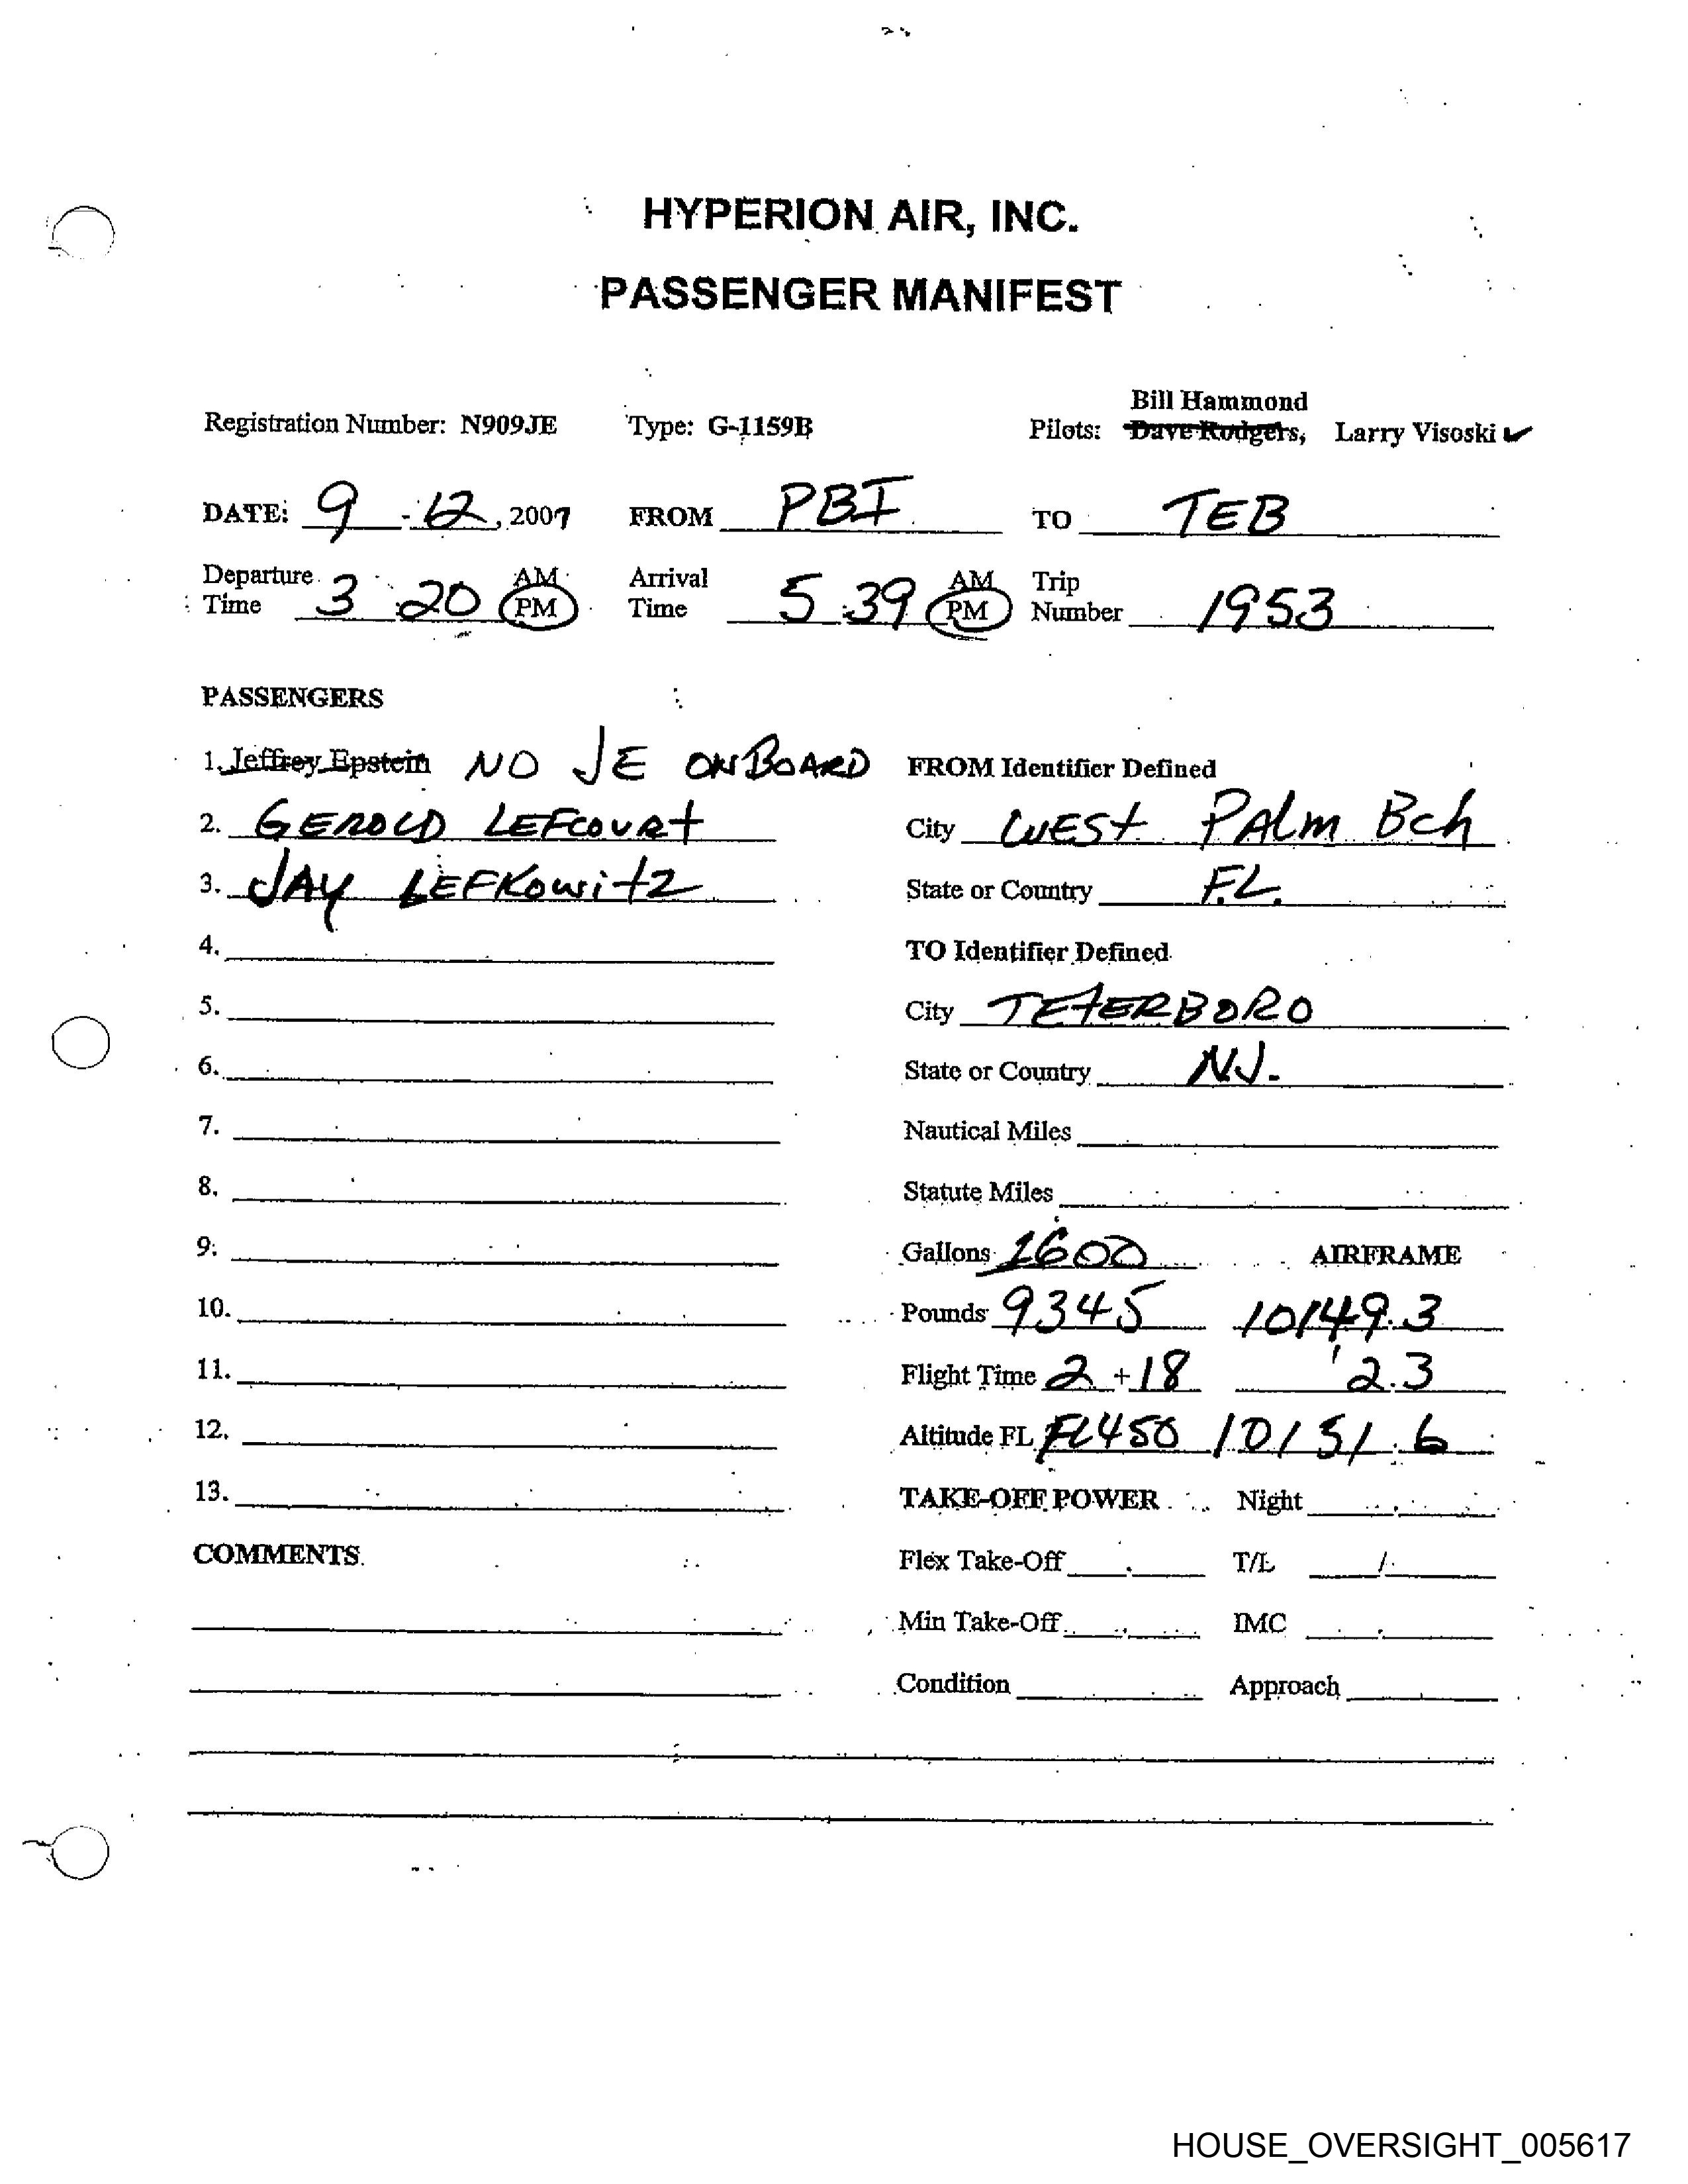 HYPERION AIR, INC.
PASSENGER MANIFEST
Bill Hammond
Registration Number: N909JE Type: G-1159B Pilots: Dave Rodgers, Larry Visoski ✓
DATE: 9 - 12, 2007 FROM PBI TO TEB
Departure Time 3:20 AM PM Arrival Time 5:39 AM PM Trip Number 1953
PASSENGERS
1. Jeffrey Epstein NO JE ONBOARD FROM Identifier Defined
2. GEROLD LEFCOURT City WEST PALM BCH
3. JAY LEFKOWITZ State or Country FL.
4. TO Identifier Defined
5. City TETERBORO
6. State or Country NJ.
7. Nautical Miles
8. Statute Miles
9. Gallons 1600 AIRFRAME
10. Pounds 9345 10149.3
11. Flight Time 2 + 18 2.3
12. Altitude FL FL450 10151.6
13. TAKE-OFF POWER Night
COMMENTS Flex Take-Off T/L /
Min Take-Off IMC
Condition Approach
HOUSE_OVERSIGHT_005617